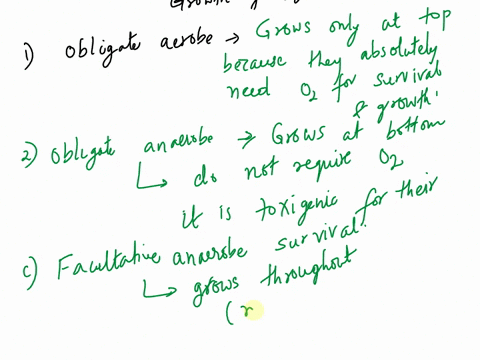 1) Obligate aerobe → Grows only at top
because they absolutely
need O2 for survival
& growth.
2) Obligate anaerobe → Grows at bottom
↳ do not require O2
it is toxigenic for their
survival.
c) Facultative anaerobe
↳ grows throughout
(